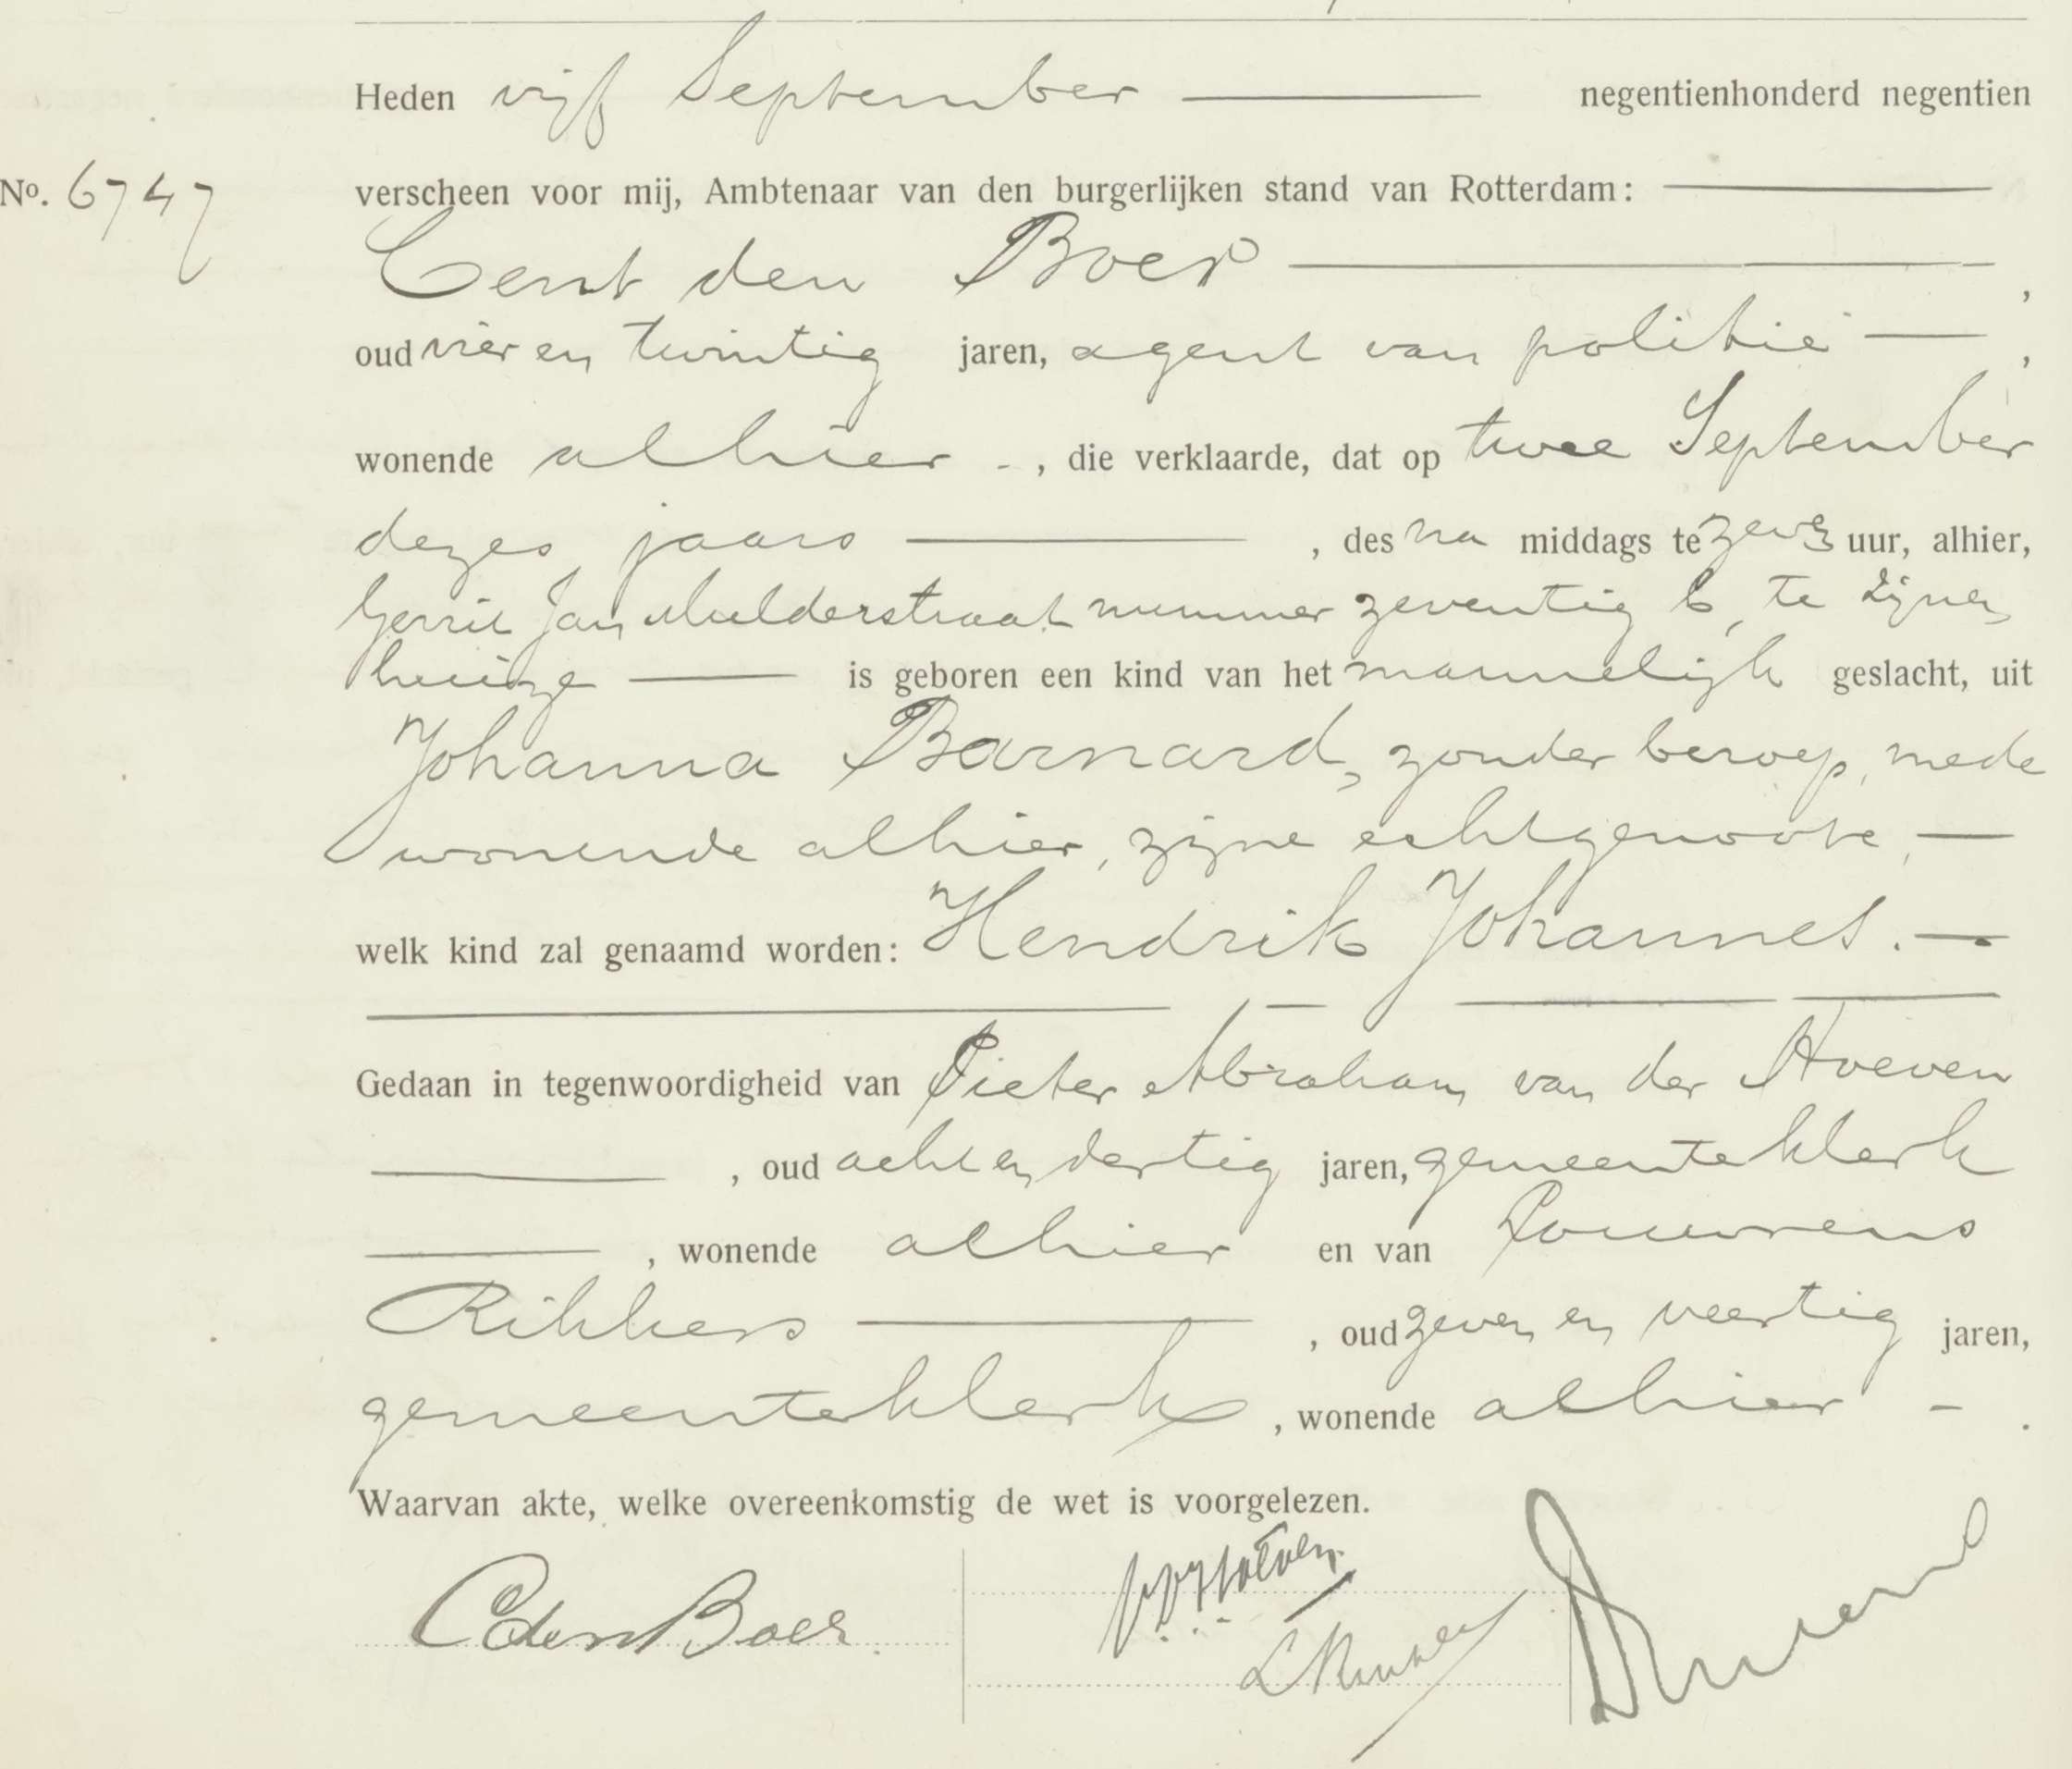 Heden vijf September negentienhonderd negentien
No. 6747
verscheen voor mij, Ambtenaar van den burgerlijken stand van Rotterdam:
Cent den Boer ,
oud vier en twintig jaren, agent van politie ,
wonende alhier - , die verklaarde, dat op twee September
dezes jaars , des na middags te zeven uur, alhier,
Gerrit Jan Mulderstraat nummer zeventig b, te zijnen
huize is geboren een kind van het mannelijk geslacht, uit
Johanna Barnard, zonder beroep, mede
wonende alhier, zijne echtgenoote,
welk kind zal genaamd worden: Hendrik Johannes.
Gedaan in tegenwoordigheid van Pieter Abraham van der Hoeven
, oud acht en dertig jaren, gemeenteklerk
, wonende alhier en van Louwrens
Rikkers , oud zeven en veertig jaren,
gemeenteklerk , wonende alhier - .
Waarvan akte, welke overeenkomstig de wet is voorgelezen.
C den Boer